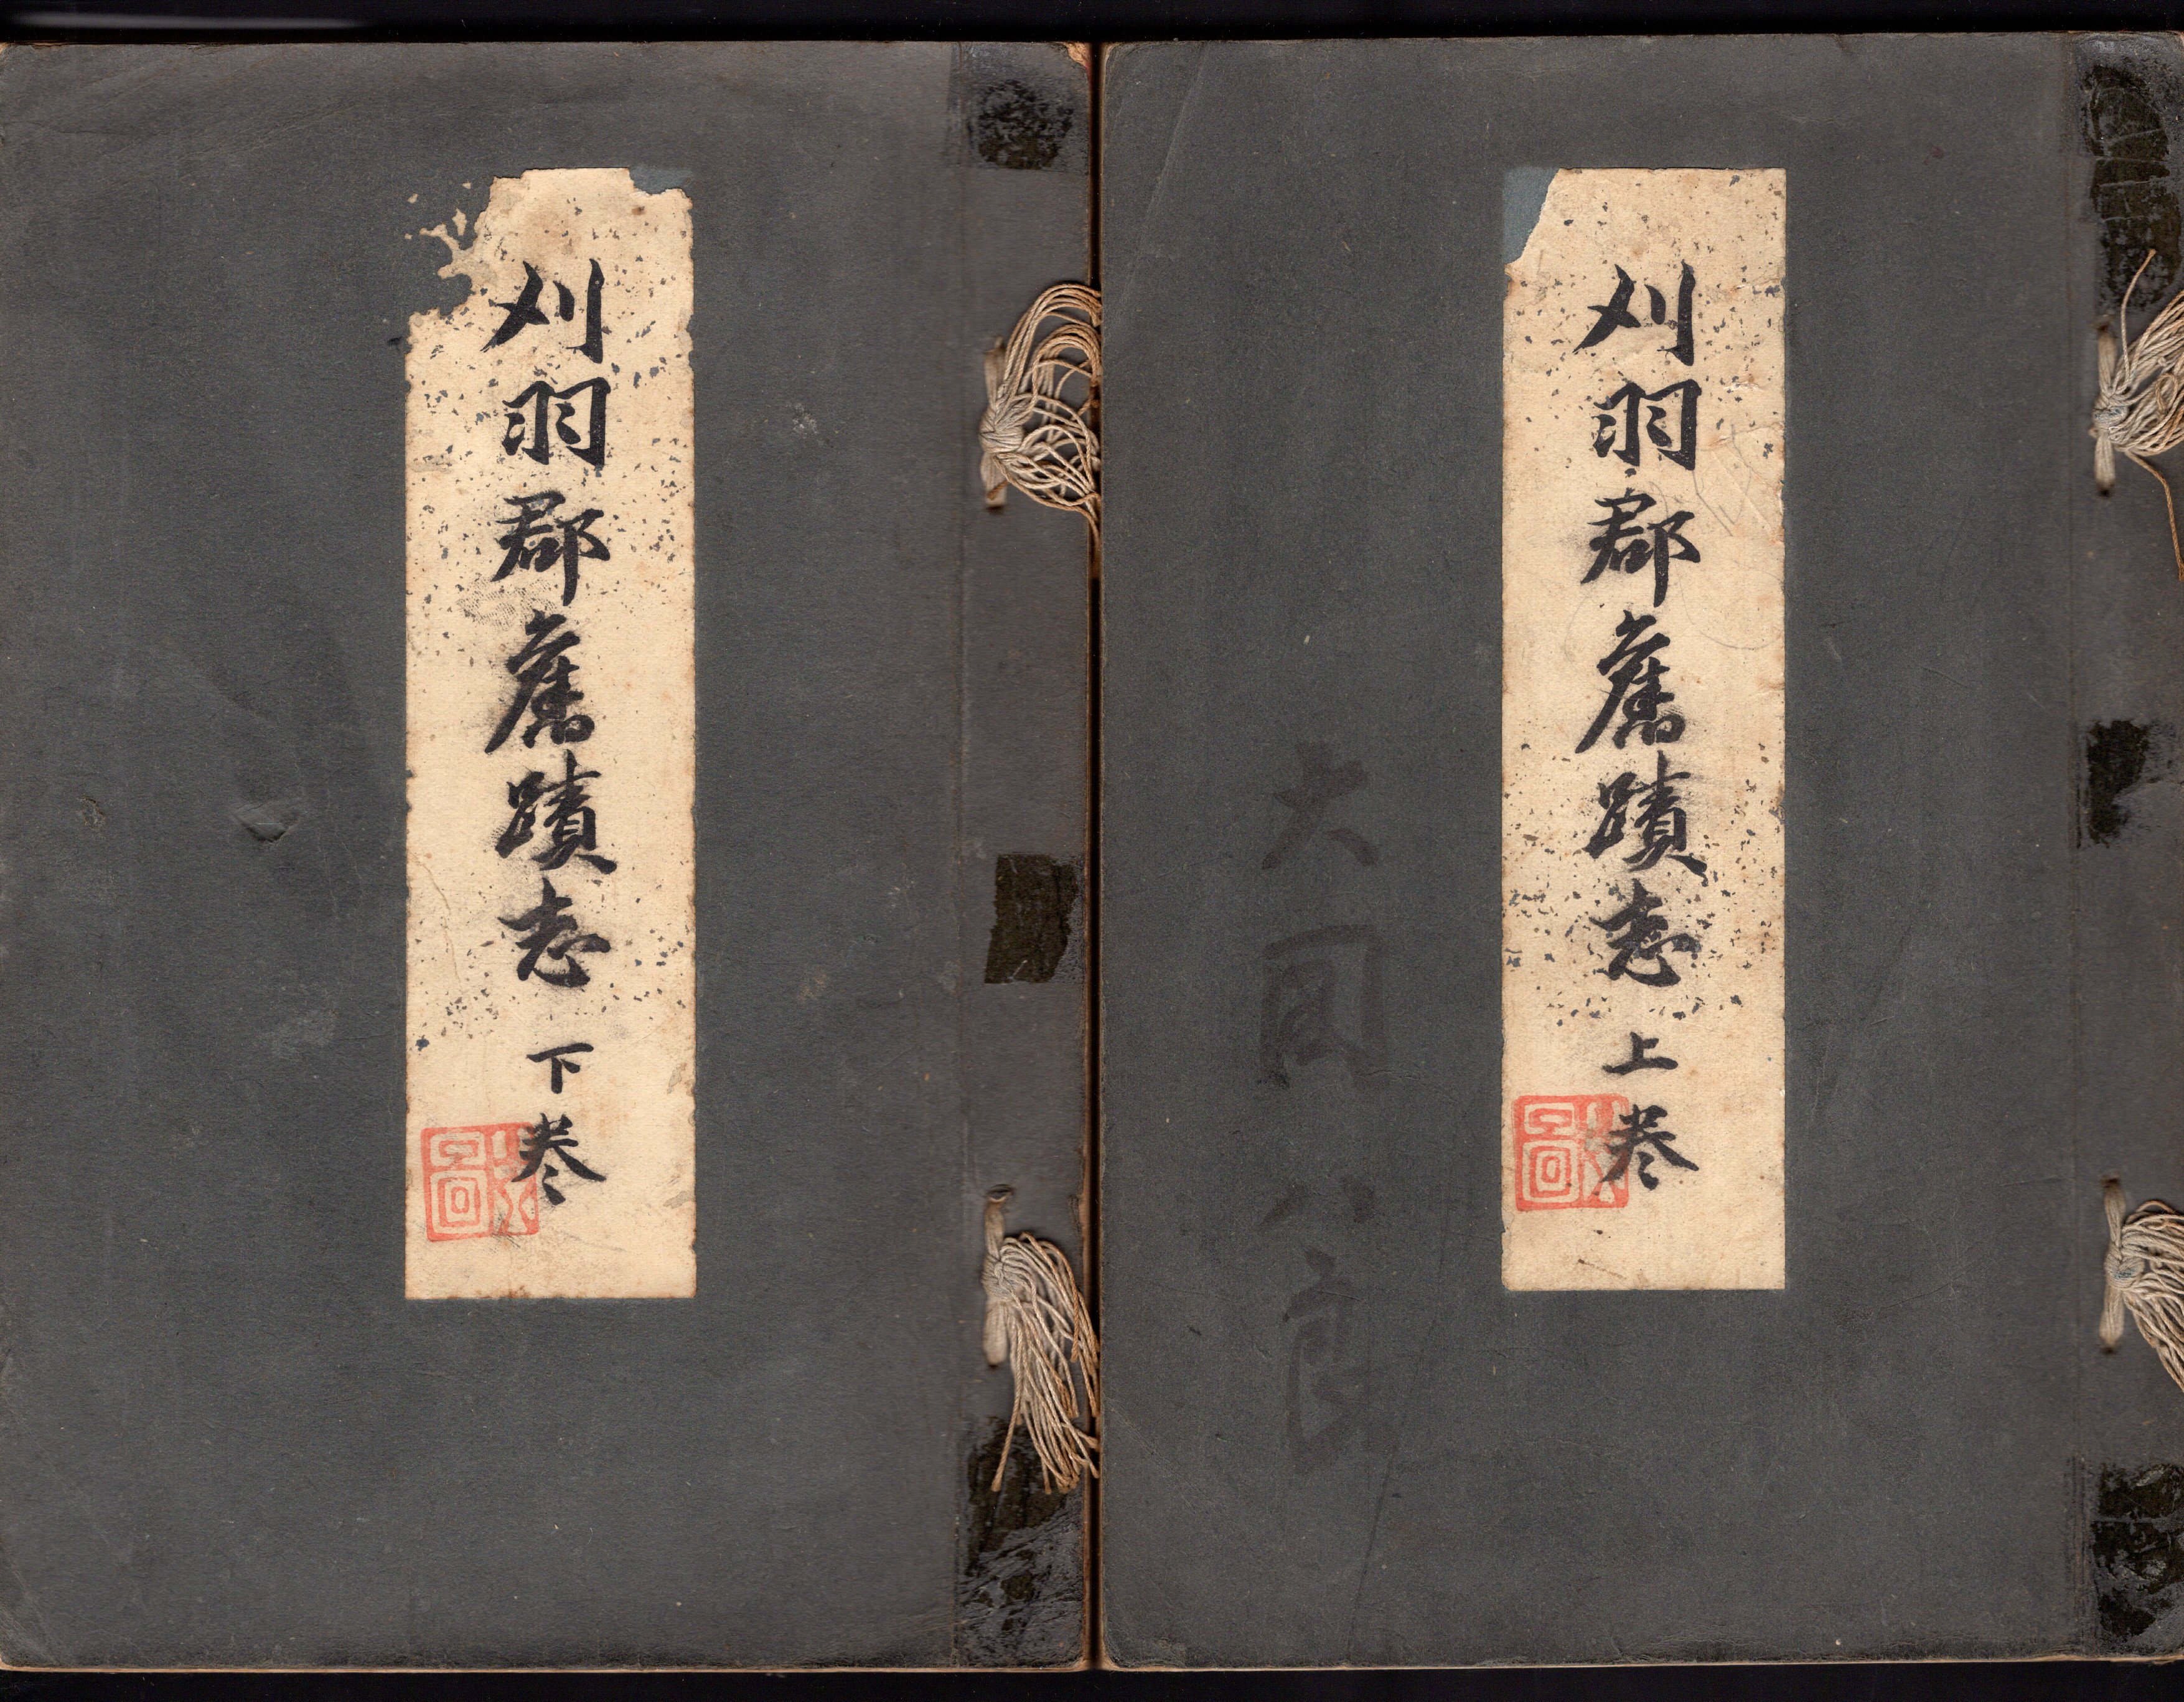 刈羽郡舊蹟志 上巻
刈羽郡舊蹟志 下巻